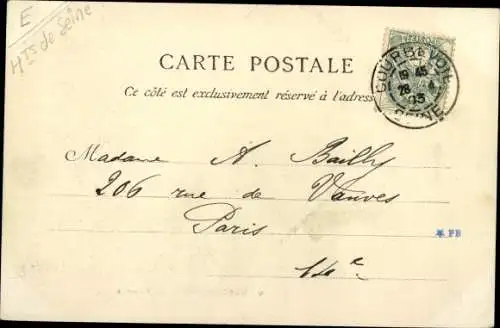 E
Hts de Seine
CARTE POSTALE
Ce côté est exclusivement réservé à l'adresse
COURBEVOIE
18 45
28 4
03
SEINE
Madame A. Bailly
206 rue de Vanves
Paris
14e
* PB